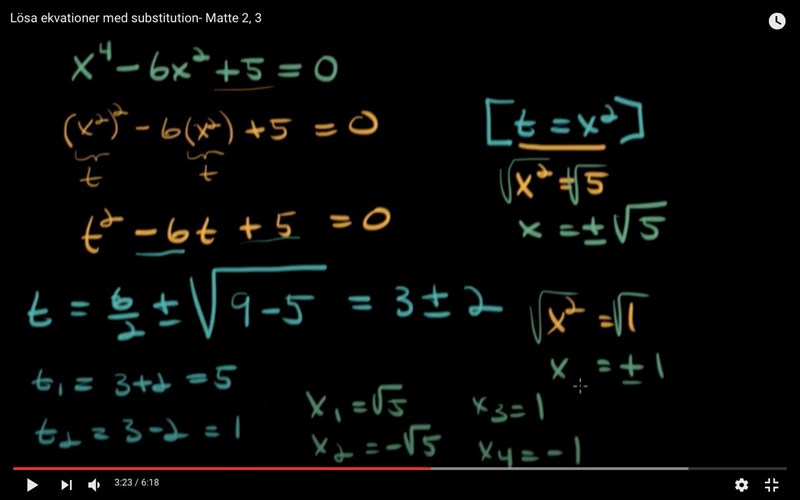 Lösa ekvationer med substitution- Matte 2, 3
x⁴ − 6x² + 5 = 0
(x²)² − 6(x²) + 5 = 0
t t
t² − 6t + 5 = 0
[t = x²]
√x² = √5
x = ±√5
t = 6/2 ± √9−5 = 3 ± 2
√x² = √1
x = ± 1
t₁ = 3+2 = 5
t₂ = 3−2 = 1
x₁ = √5
x₂ = −√5
x₃ = 1
x₄ = −1
3:23 / 6:18